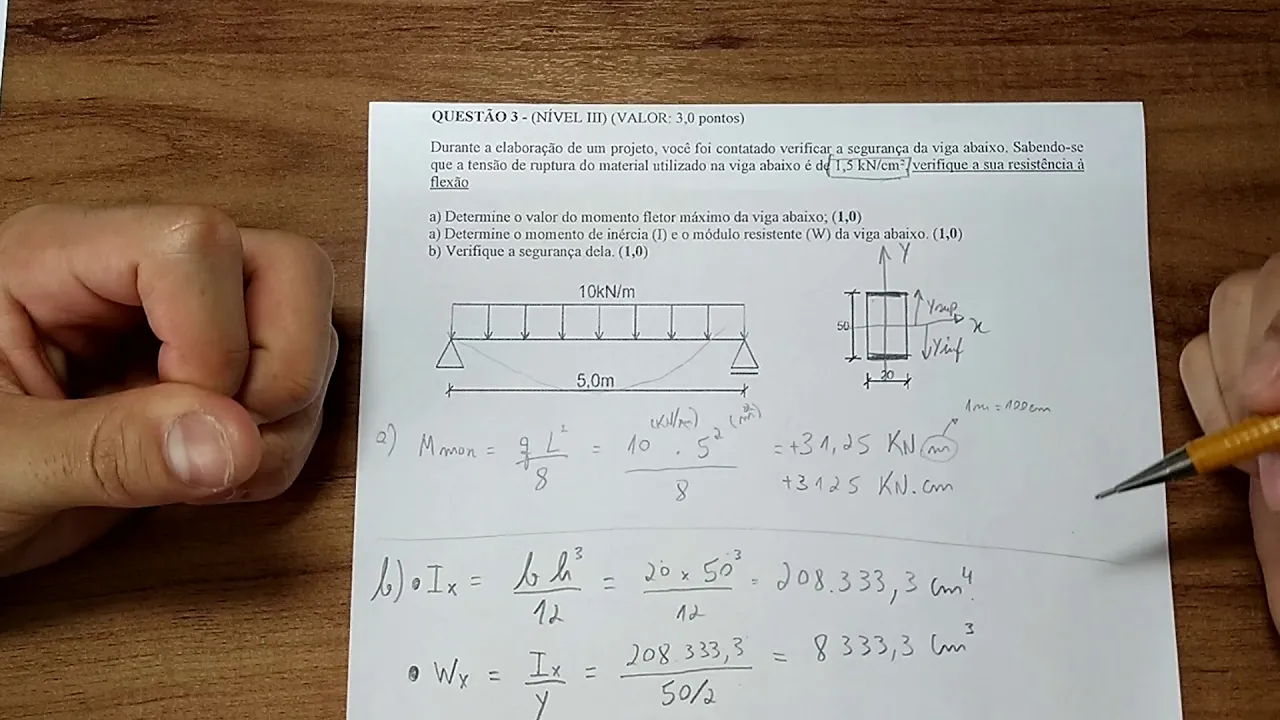 QUESTÃO 3 - (NÍVEL III) (VALOR: 3,0 pontos)
Durante a elaboração de um projeto, você foi contatado verificar a segurança da viga abaixo. Sabendo-se
que a tensão de ruptura do material utilizado na viga abaixo é de 1,5 kN/cm², verifique a sua resistência à
flexão
a) Determine o valor do momento fletor máximo da viga abaixo; (1,0)
a) Determine o momento de inércia (I) e o módulo resistente (W) da viga abaixo. (1,0)
b) Verifique a segurança dela. (1,0)
10kN/m
5,0m
Y
Ysup
x
Yinf
50
20
1m = 100cm
a) Mmax = qL²/8 = 10 (kN/m) . 5² (m²) / 8 = +31,25 KN m
+3125 KN.cm
b) • Ix = bh³/12 = 20 x 50³/12 = 208.333,3 cm⁴
• Wx = Ix/y = 208.333,3 / 50/2 = 8333,3 cm³